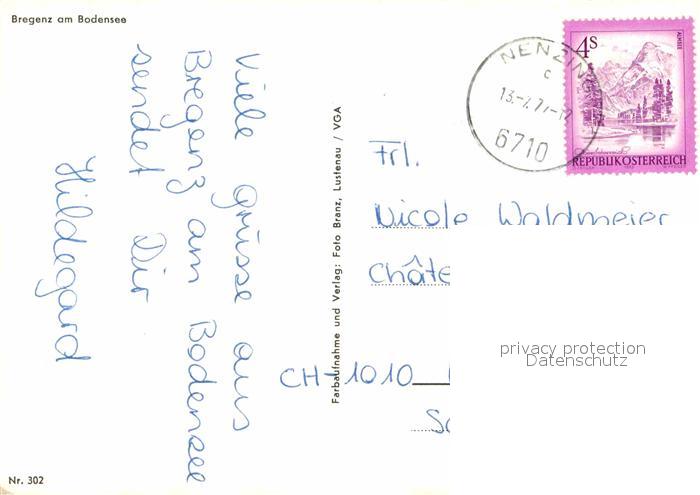 Bregenz am Bodensee
Viele grüsse aus
Bregenz am Bodensee
sendet Dir
Hildegard
Nr. 302
Farbaufnahme und Verlag: Foto Branz, Lustenau / VGA
NENZING
c
13.-7.77-17
6710
4S
ALMSEE
REPUBLIK ÖSTERREICH
Frl.
Nicole Waldmeier
Châte
CH-1010
Sc
privacy protection
Datenschutz